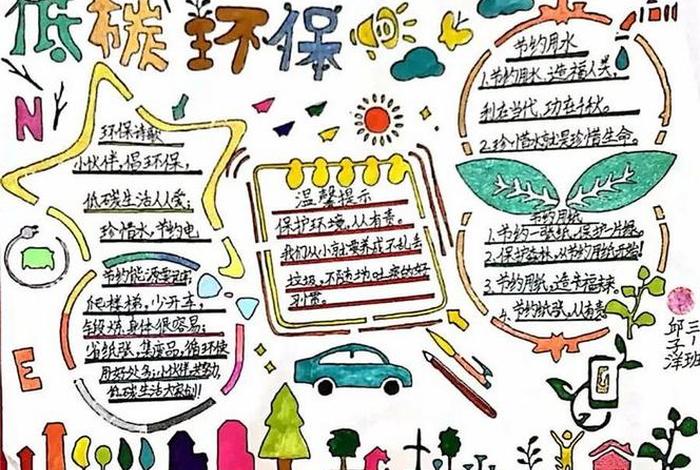 低碳环保
N
环保诗歌
小伙伴，倡环保，
低碳生活人人爱；
珍惜水，节约电，
节约能源要记牢；
爬楼梯，少开车，
身体很容易；
集废品，循环使
用好处多；小伙伴，
低碳生活大家创！
E
温馨提示
保护环境，人人有责。
我们从小就要养成不乱丢
垃圾，不随地吐痰的好
习惯。
节约用水
1.节约用水，造福人类，
利在当代，功在千秋。
2.珍惜水就是珍惜生命。
节约用纸
1.节约一张纸，保护一片绿。
2.保护森林，从节约用纸开始！
3.节约用纸，造幸福未来。
4.节约纸张，从有责
三丁班
邱子洋